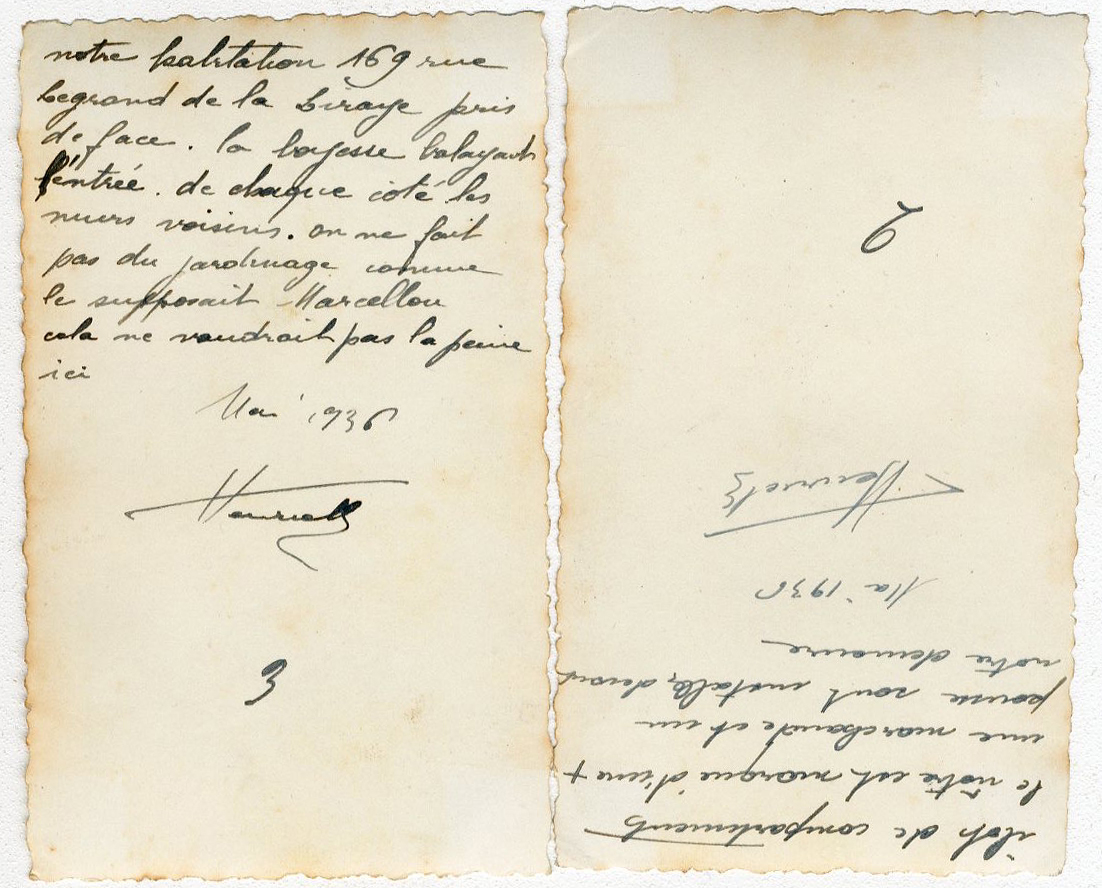 notre habitation 169 rue
Legrand de la Liraye pris
de face. la bayesse balayant
l'entrée. de chaque coté les
murs voisins. on ne fait
pas du jardinage comme
le supposait Marcellou
cela ne vaudrait pas la peine
ici
Mai 1936
Henriett
3
2
ilot de compartiments
le notre est marqué d'une +
une marchande et un
pousse sont installés devant
notre demeure
Mai 1936
Henriett